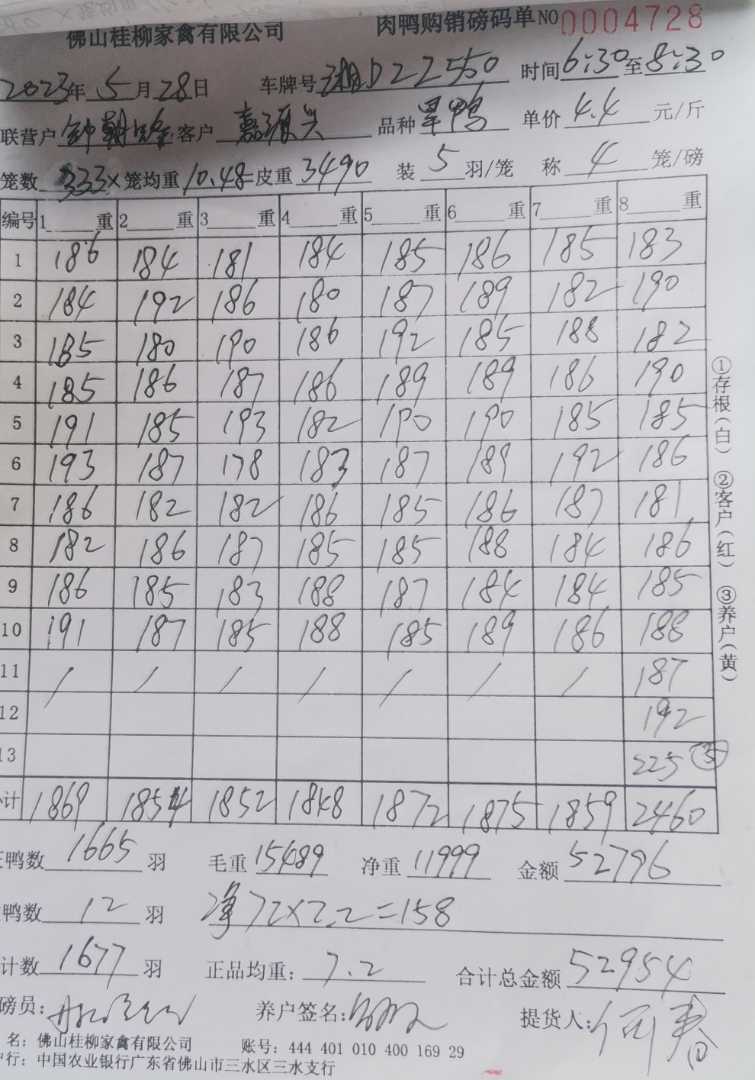 佛山桂柳家禽有限公司 肉鸭购销磅码单 NO 0004728
2023年5月28日 车牌号 湘D22550 时间 6:30 至 8:30
联营户 客户 嘉源兴 品种 旱鸭 单价 4.4 元/斤
笼数 333 × 笼均重 10.48 = 皮重 3490 装 5 羽/笼 称 4 笼/磅
编号 1 重 2 重 3 重 4 重 5 重 6 重 7 重 8 重
1 186 184 181 184 185 186 185 183
2 184 192 186 180 187 189 182 190
3 185 180 190 186 192 185 188 182
4 185 186 187 186 189 189 186 190
5 191 185 193 182 190 190 185 185
6 193 187 178 183 187 189 192 186
7 186 182 182 186 185 186 187 181
8 182 186 187 185 185 188 184 186
9 186 185 183 188 187 184 184 185
10 191 187 185 188 185 189 186 188
11 / / / / / / / 187
12 192
13 225 ⑤
计 1869 1854 1852 1848 1872 1875 1859 2460
鸭数 1665 羽 毛重 15489 净重 11999 金额 52796
鸭数 12 羽 净72×2.2=158
计数 1677 羽 正品均重: 7.2 合计总金额 52954
磅员: 养户签名: 提货人:
名: 佛山桂柳家禽有限公司 账号: 444 401 010 400 169 29
行: 中国农业银行广东省佛山市三水区三水支行
①存根(白) ②客户(红) ③养户(黄)